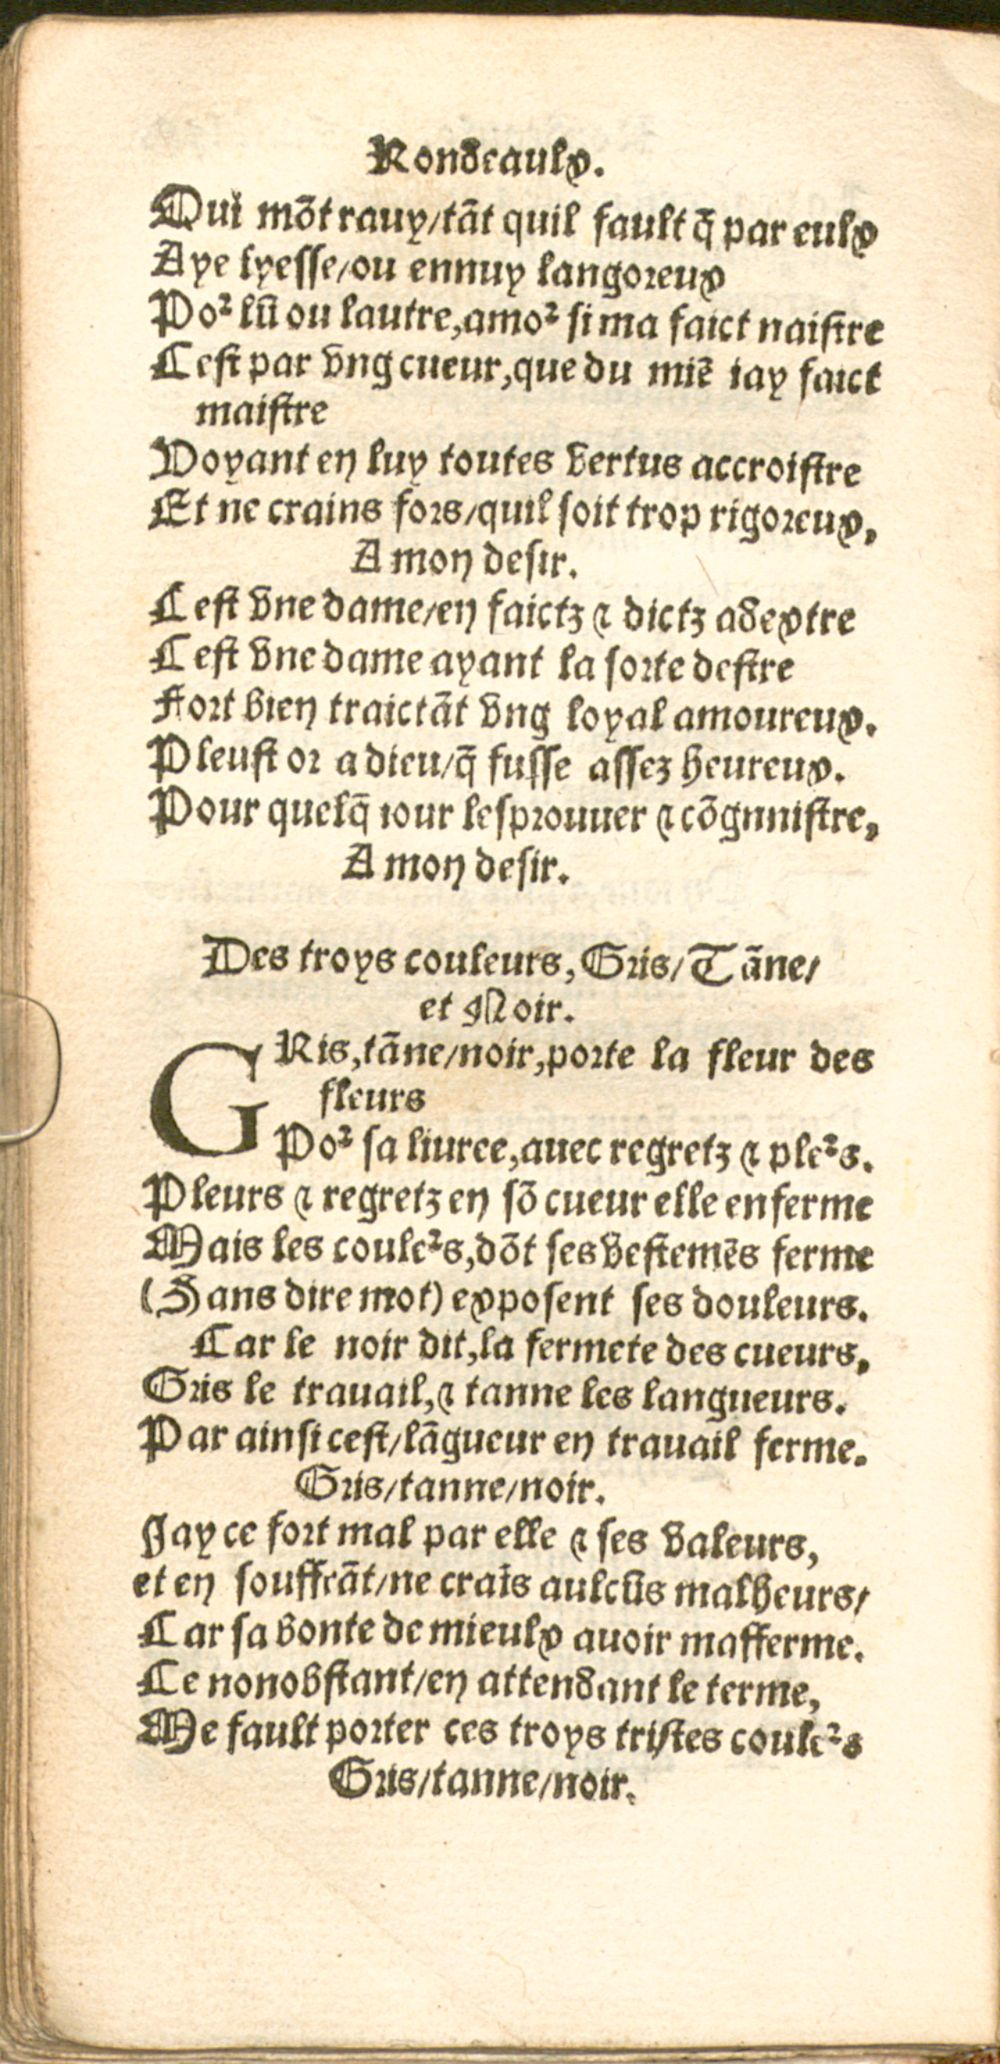 Rondeaulx.
Qui mõt rauy/tãt quil fault q̃ par eulx
Aye lyesse/ou ennuy langoreux
Poꝰ lũ ou lautre,amoꝰ si ma faict naistre
Cest par vng cueur,que du miẽ iay faict
maistre
Voyant en luy toutes vertus accroistre
Et ne crains fors/quil soit trop rigoreux,
A mon desir.
Cest vne dame/en faictz ⁊ dictz adextre
Cest vne dame ayant la sorte destre
Fort bien traictãt vng loyal amoureux.
Pleust or a dieu/q̃ fusse assez heureux.
Pour quelq̃ iour lesprouuer ⁊ cõgnnistre,
A mon desir.
Des troys couleurs, Gris/Tãne/
et Noir.
GRis,tãne/noir,porte la fleur des
fleurs
Poꝰ sa liuree,auec regretz ⁊ pleꝰs.
Pleurs ⁊ regretz en sõ cueur elle enferme
Mais les couleꝰs,dõt ses vestemẽs ferme
(Sans dire mot) exposent ses douleurs.
Car le noir dit,la fermete des cueurs,
Gris le trauail,⁊ tanne les langueurs.
Par ainsi cest/lãgueur en trauail ferme.
Gris/tanne/noir.
Jay ce fort mal par elle ⁊ ses valeurs,
et en souffrãt/ne craĩs aulcũs malheurs/
Car sa bonte de mieulx auoir mafferme.
Ce nonobstant/en attendant le terme,
Me fault porter ces troys tristes couleꝰs
Gris/tanne/noir.